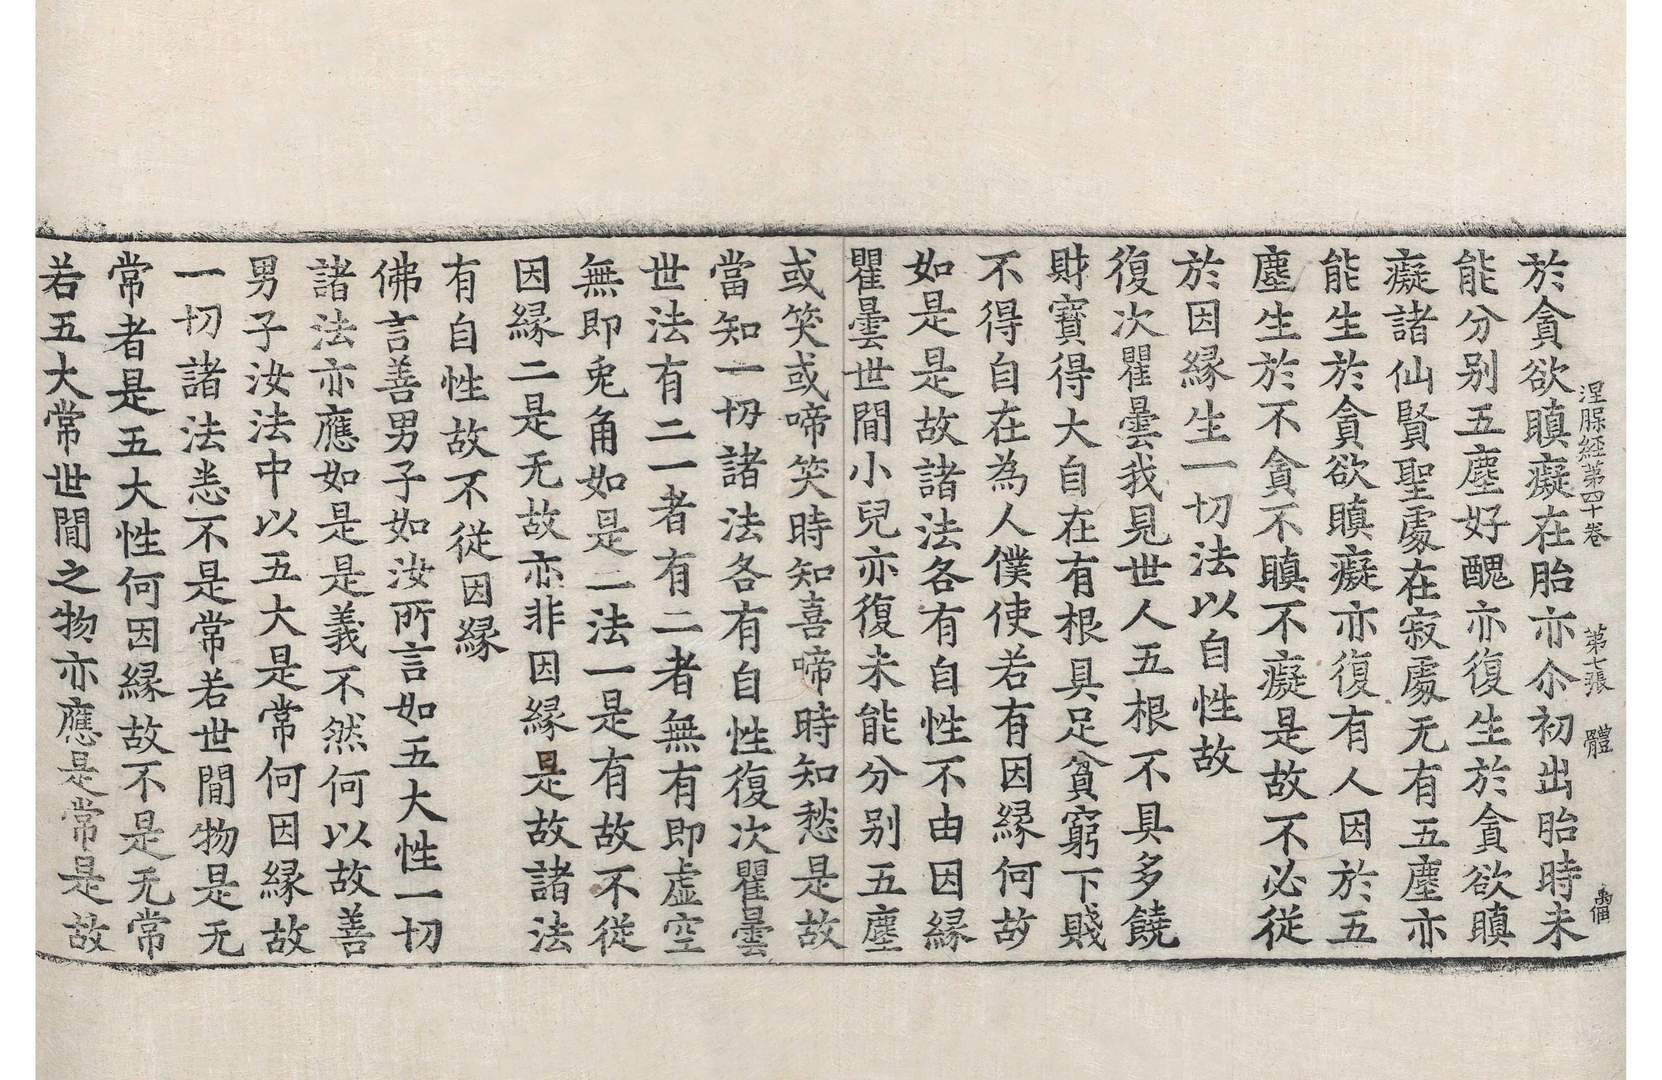 涅槃経第四十卷 第七張 體
於貪欲瞋癡在胎亦尒初出胎時未
能分别五塵好醜亦復生於貪欲瞋
癡諸仙賢聖處在寂處无有五塵亦
能生於貪欲瞋癡亦復有人因於五
塵生於不貪不瞋不癡是故不必從
於因縁生一切法以自性故
復次瞿曇我見世人五根不具多饒
財寶得大自在有根具足貧窮下賤
不得自在為人僕使若有因縁何故
如是是故諸法各有自性不由因縁
瞿曇世間小兒亦復未能分别五塵
或笑或啼笑時知喜啼時知愁是故
當知一切諸法各有自性復次瞿曇
世法有二一者有二者無有即虚空
無即兎角如是二法一是有故不從
因縁二是无故亦非因縁是故諸法
有自性故不從因縁
佛言善男子如汝所言如五大性一切
諸法亦應如是是義不然何以故善
男子汝法中以五大是常何因縁故
一切諸法悉不是常若世間物是无
常者是五大性何因縁故不是无常
若五大常世間之物亦應是常是故